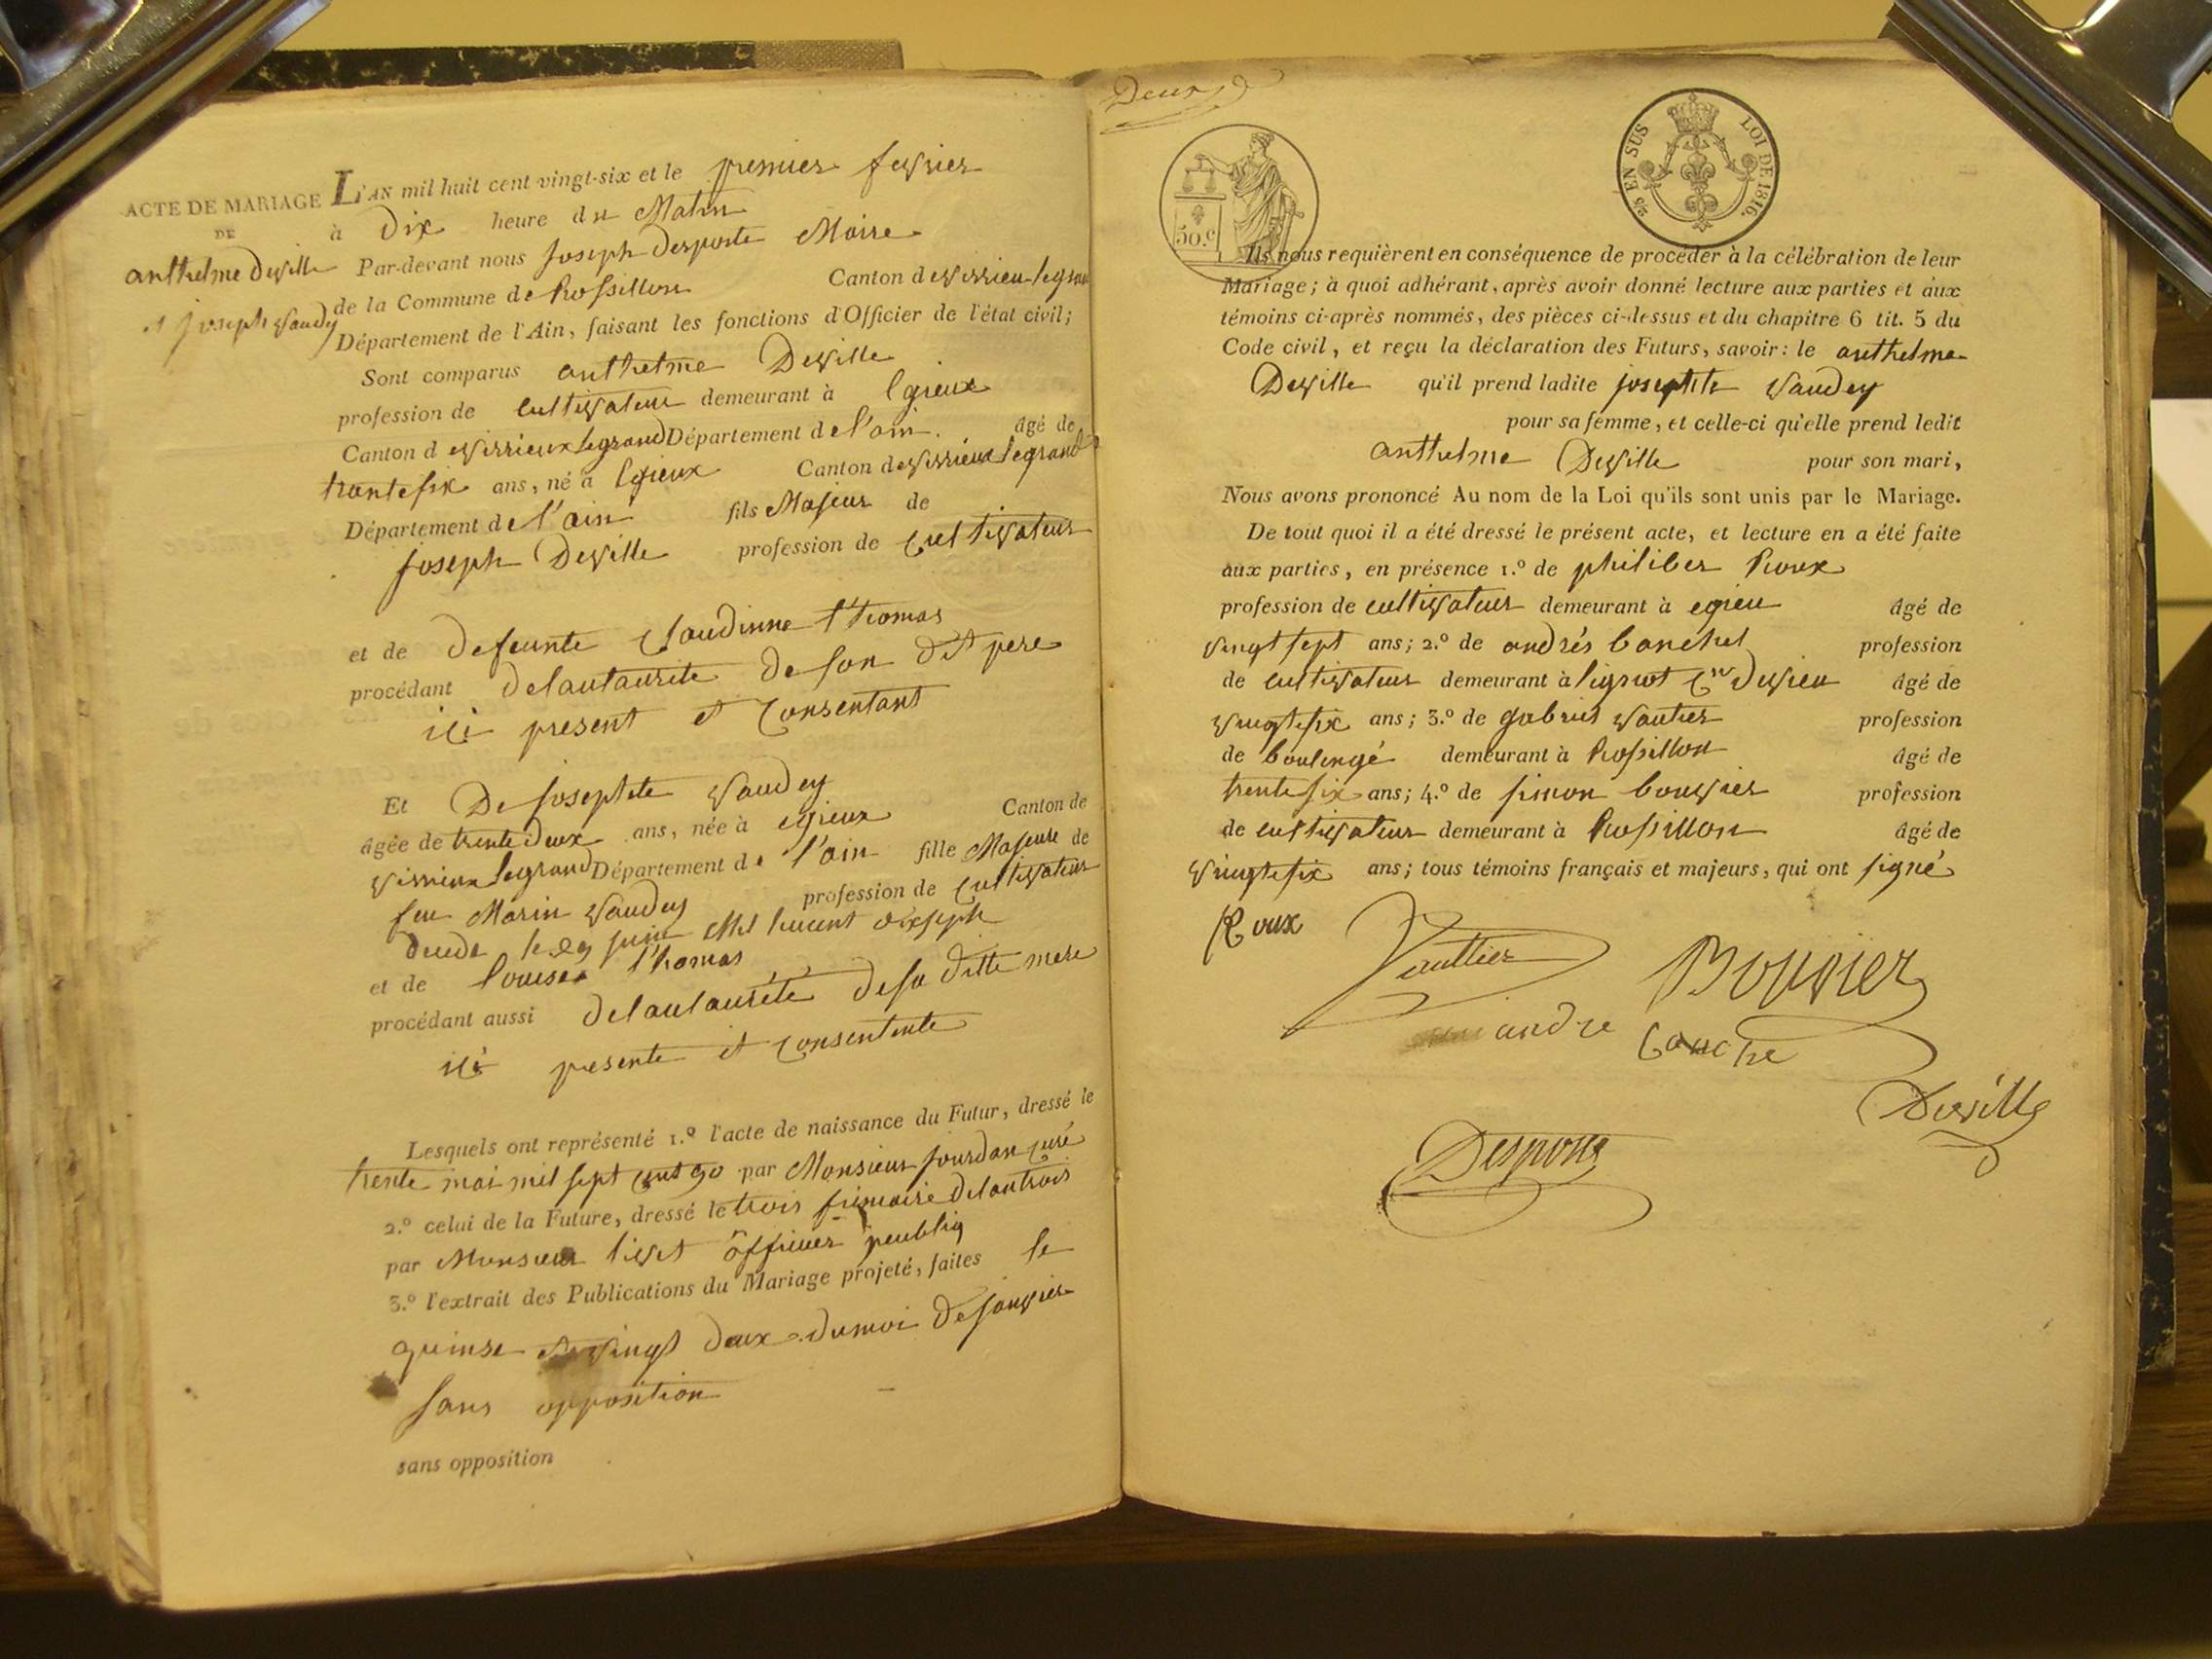 ACTE DE MARIAGE
DE
anthelme deville
et joseph vaudey
L'AN mil huit cent vingt-six et le premier fevrier
à Dix heure du Matin
Par-devant nous joseph desporte Maire
de la Commune de Rossillon Canton de virieu legrand
Département de l'Ain, faisant les fonctions d'Officier de l'état civil;
Sont comparus anthelme Deville
profession de cultivateur demeurant à Egieux
Canton d evirrieux legrand Département de l'ain. âgé de
trantesix ans, né à Egieux Canton devirrieux legrand
Département de l'ain fils Majeur de
joseph Deville profession de cultivateur
et de defeunte Claudinne thomas
procédant delautaurite de son dit pere
ici present et consentant
Et De josephte vaudey
âgée de trentedeux ans, née à egieux Canton de
virrieux legrand Département de l'ain fille Majeure de
feu Marin vaudey profession de cultivateur
decede le 29 juin Mil huicent dixsept
et de louise thomas
procédant aussi delautaurité desa ditte mere
ici presente et consentente
Lesquels ont représenté 1.º l'acte de naissance du Futur, dressé le
trente mai mil sept cent 90 par Monsieur jourdan curé
2.º celui de la Future, dressé le trois frimaire delantrois
par Monsieur livet officier peubliq
3.º l'extrait des Publications du Mariage projeté, faites le
quinse et vingt deux dumoi dejanvier
sans opposition
sans opposition
Deux
50.c
2/5 EN SUS LOI DE 1816.
Ils nous requièrent en conséquence de procéder à la célébration de leur
Mariage; à quoi adhérant, après avoir donné lecture aux parties et aux
témoins ci-après nommés, des pièces ci-dessus et du chapitre 6 tit. 5 du
Code civil, et reçu la déclaration des Futurs, savoir: le anthelme
Deville qu'il prend ladite josephte vaudey
pour sa femme, et celle-ci qu'elle prend ledit
anthelme Deville pour son mari,
Nous avons prononcé Au nom de la Loi qu'ils sont unis par le Mariage.
De tout quoi il a été dressé le présent acte, et lecture en a été faite
aux parties, en présence 1.º de philiber Roux
profession de cultivateur demeurant à egieu âgé de
vingt sept ans; 2.º de andrés canchet profession
de cultivateur demeurant à âgé de
vingtsix ans; 3.º de gabriel vautier profession
de boulengé demeurant à Rossillon âgé de
trentesix ans; 4.º de simon bouvier profession
de cultivateur demeurant à Rossillon âgé de
vingtsix ans; tous témoins français et majeurs, qui ont signé
Roux Vauttier Bouvier
andre canche
Deville
Desporte